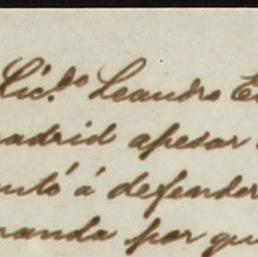 Lic.do Leandro E
adrid apesar
ntó á defender
anda por qu